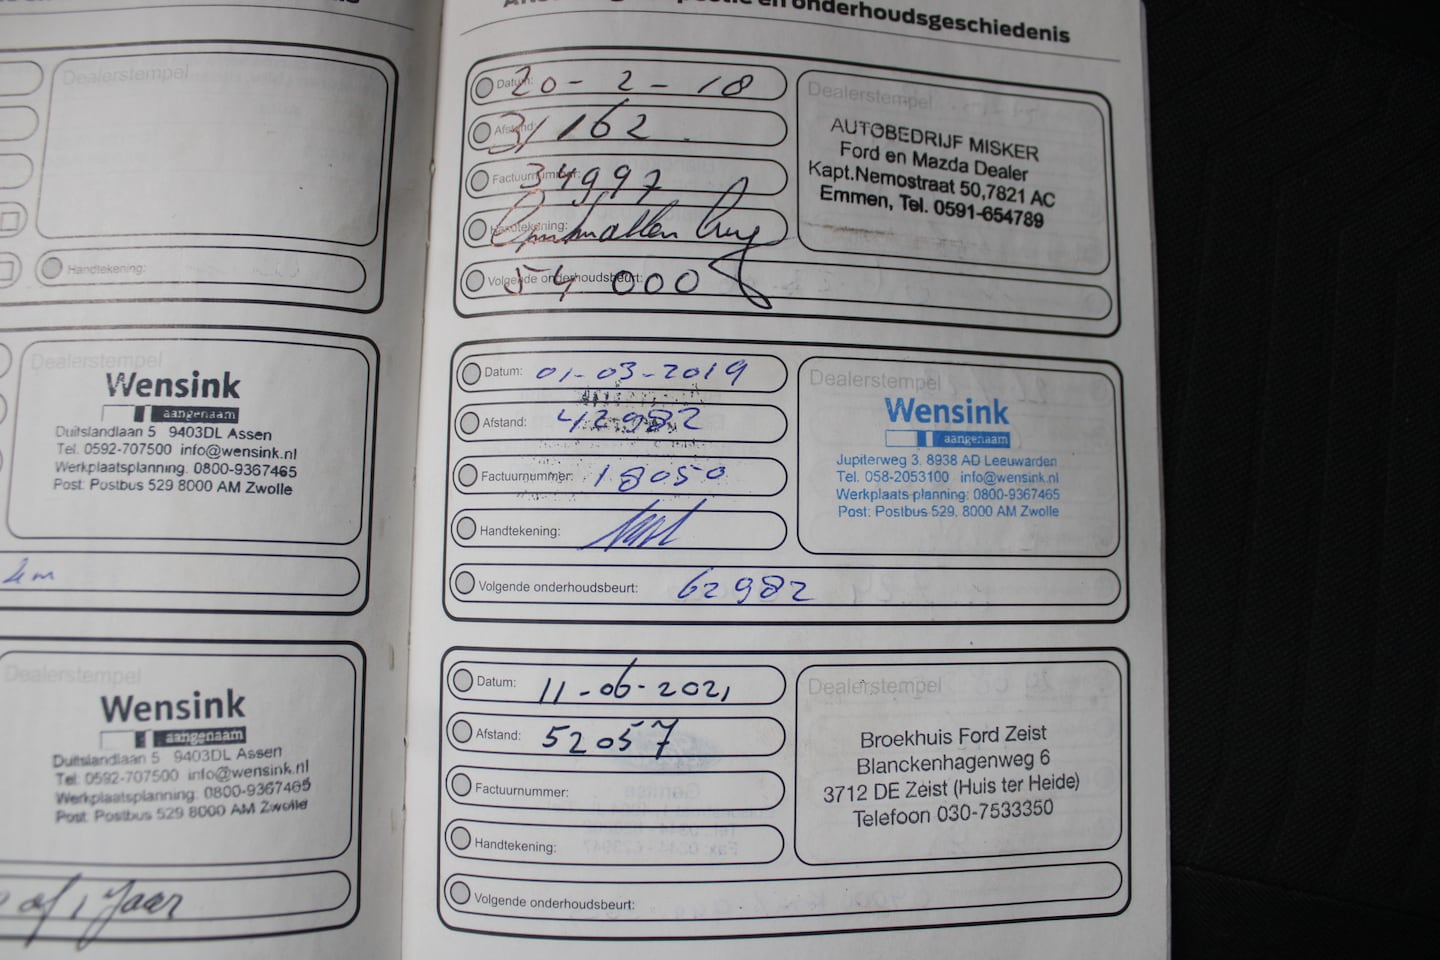 onderhoudsgeschiedenis
Dealerstempel
Handtekening:
Dealerstempel
Wensink
aangenaam
Duitslandlaan 5 9403DL Assen
Tel. 0592-707500 info@wensink.nl
Werkplaatsplanning: 0800-9367465
Post: Postbus 529 8000 AM Zwolle
Dealerstempel
Wensink
aangenaam
Duitslandlaan 5 9403DL Assen
Tel. 0592-707500 info@wensink.nl
Werkplaatsplanning: 0800-9367465
Post: Postbus 529 8000 AM Zwolle
of 1 Jaar
Datum: 20-2-18
Afstand: 31162
Factuurnummer: 34997
Handtekening:
Volgende onderhoudsbeurt: 54000
Dealerstempel
AUTOBEDRIJF MISKER
Ford en Mazda Dealer
Kapt.Nemostraat 50,7821 AC
Emmen, Tel. 0591-654789
Datum: 01-03-2019
Afstand: 42982
Factuurnummer: 18050
Handtekening:
Volgende onderhoudsbeurt: 62982
Dealerstempel
Wensink
aangenaam
Jupiterweg 3. 8938 AD Leeuwarden
Tel. 058-2053100 info@wensink.nl
Werkplaats planning: 0800-9367465
Post: Postbus 529. 8000 AM Zwolle
Datum: 11-06-2021
Afstand: 52057
Factuurnummer:
Handtekening:
Volgende onderhoudsbeurt:
Dealerstempel
Broekhuis Ford Zeist
Blanckenhagenweg 6
3712 DE Zeist (Huis ter Heide)
Telefoon 030-7533350